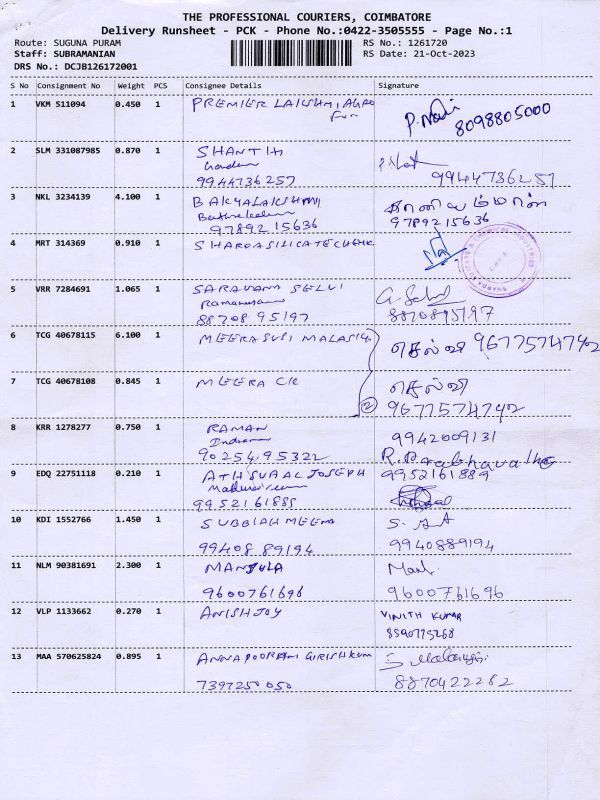 THE PROFESSIONAL COURIERS, COIMBATORE
Delivery Runsheet - PCK - Phone No.:0422-3505555 - Page No.:1
Route: SUGUNA PURAM
RS No.: 1261720
Staff: SUBRAMANIAN
RS Date: 21-Oct-2023
DRS No.: DCJB126172001
S No Consignment No Weight PCS Consignee Details Signature
1 VKM 511094 0.450 1 PREMIER LAKSHMI AGRO
8098805000
2 SLM 331087985 0.870 1 SHANTHI
9944736257 9944736257
3 NKL 3234139 4.100 1 BAKYALAKSHMI
9789215636 9789215636
4 MRT 314369 0.910 1 SHARDASILICATECHEMIC
5 VRR 7284691 1.065 1 SARAVANA SELVI
88708 95197 8870895197
6 TCG 40678115 6.100 1 MEERASUSI MALASIG செல்வி 9677574742
7 TCG 40678108 0.845 1 MEERA CK செல்வி
2 9677574742
8 KRR 1278277 0.750 1 RAMAN 9942009131
90254 95322 R.Prabhavathy
9 EDQ 22751118 0.210 1 ATHSUAAL JOSEPH 9952161889
9952161889
10 KDI 1552766 1.450 1 SUBBIAH MEENA
99408 89194 9940889194
11 NLM 90381691 2.300 1 MANJULA
9600761696 9600761696
12 VLP 1133662 0.270 1 ANISH JOY VINITH KUMAR
13 MAA 570625824 0.895 1 ANNAPOORANI GIRISHKUM
7397250050 8870422282